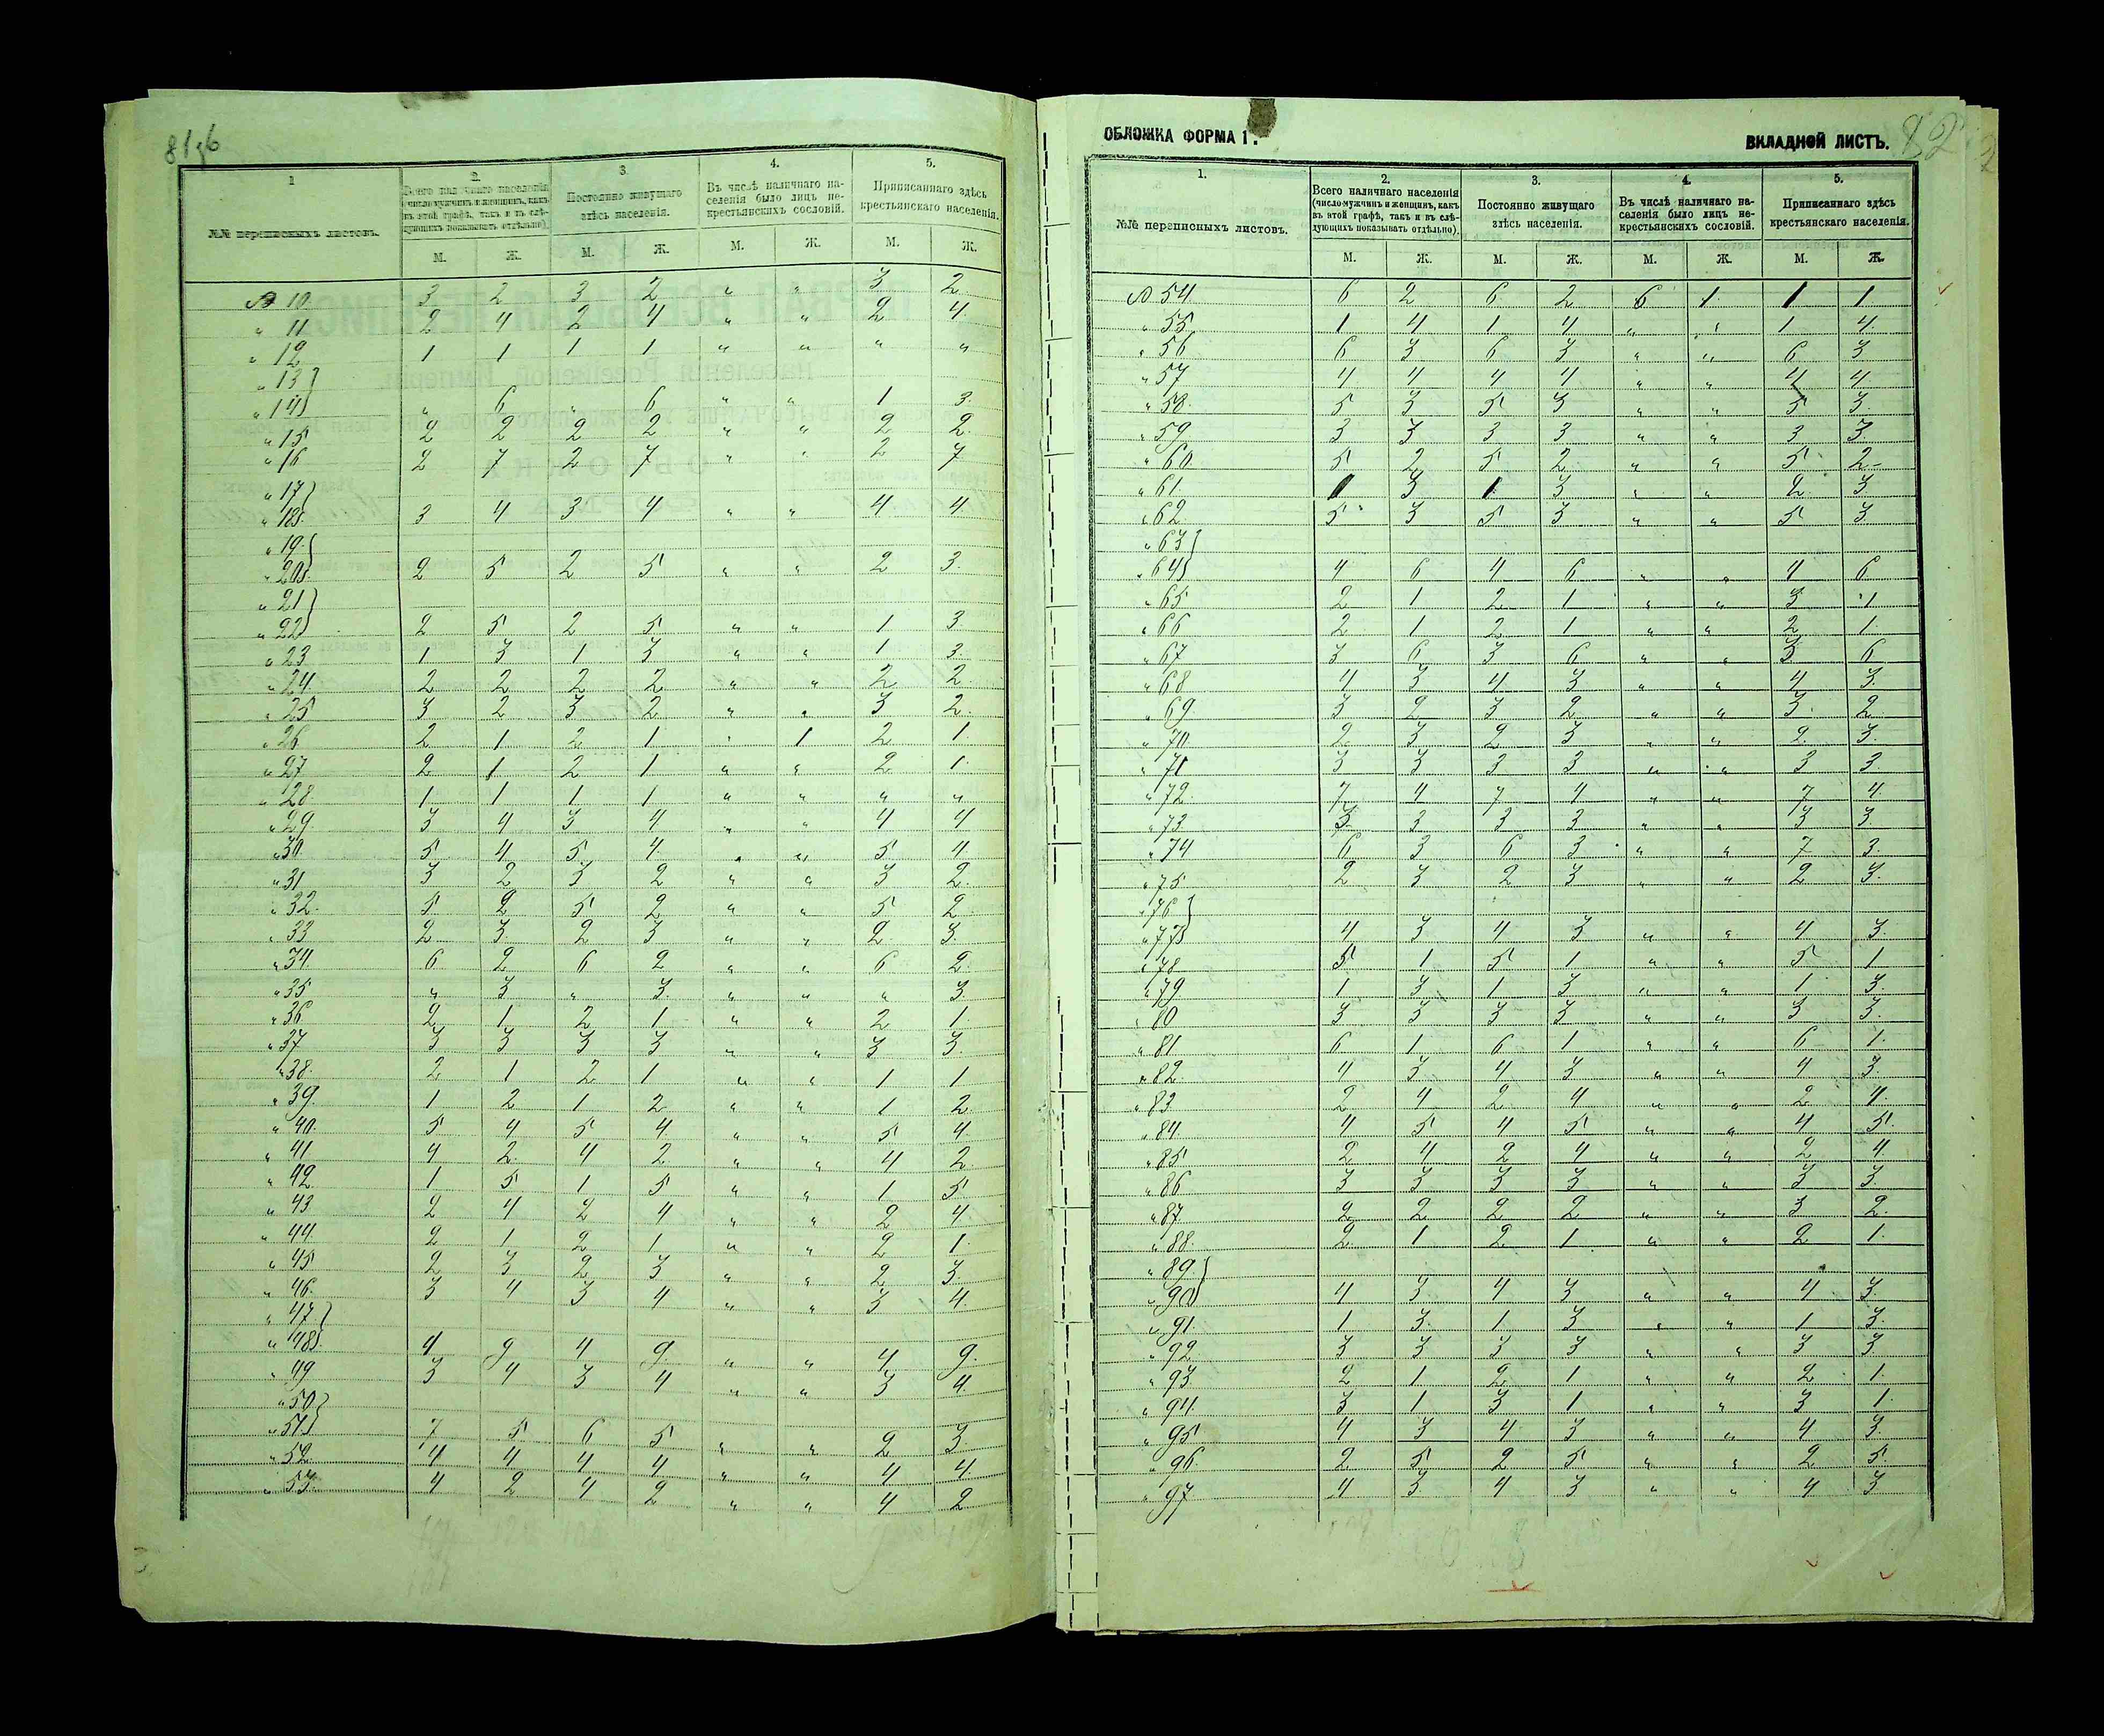 81об
1
2.
3.
4.
5.
№№ переписныхъ листовъ.
Всего наличнаго населенія
(число мужчинъ и женщинъ, какъ
въ этой графѣ, такъ и въ слѣ-
дующихъ показывать отдѣльно).
Постоянно живущаго
здѣсь населенія.
Въ числѣ наличнаго на-
селенія было лицъ не-
крестьянскихъ сословій.
Приписаннаго здѣсь
крестьянскаго населенія.
М. Ж. М. Ж. М. Ж. М. Ж.
№ 10. 3 2 3 2 " " 3 2.
" 11 2 4 2 4 " " 2 4.
" 12 1 1 1 1 " " " "
" 13 }
" 14 } " 6 " 6 " " 1 3.
" 15 2 2 2 2 " " 2 2.
" 16 2 7 2 7 " " 2 7
" 17 }
" 18 } 3 4 3 4 " " 4 4
" 19 }
" 20 } 2 5 2 5 " " 2 3.
" 21 }
" 22 } 2 5 2 5 " " 1 3
" 23 1 3 1 3 " " 1 3.
" 24. 2 2 2 2 " " 2 2.
" 25 3 2 3 2 " " 3 2.
" 26 2 1 2 1 " 1 2 1.
" 27 2 1 2 1 " " 2 1.
" 28. 1 1 1 1 " " " "
" 29. 3 4 3 4 " " 4 4
" 30. 5 4 5 4 " " 5 4.
" 31 3 2 3 2 " " 3 2.
" 32. 5 2 5 2 " " 5 2
" 33 2 3 2 3 " " 2 3.
" 34. 6 2 6 2 " " 6 2.
" 35 " 3 " 3. " " " 3.
" 36. 2 1 2 1 " " 2 1.
" 37 3 3 3 3 " " 3 3.
" 38. 2 1 2 1 " " 1 1
" 39. 1 2 1 2 " " 1 2
" 40. 5 4 5 4 " " 5 4.
" 41 4 2 4 2 " " 4 2.
" 42 1 5 1 5 " " 1 5.
" 43 2 4 2 4 " " 2 4.
" 44. 2 1 2 1 " " 2 1.
" 45 2 3 2 3 " " 2 3.
" 46. 3 4 3 4 " " 3 4.
" 47 }
" 48 } 4 9 4 9 " " 4 9.
" 49 3 4 3 4 " " 3 4.
" 50 }
" 51 } 7 5 6 5 " " 2 3.
" 52. 4 4 4 4 " " 4 4.
" 53. 4 2 4 2 " " 4 2
ОБЛОЖКА ФОРМА 1.
ВКЛАДНОЙ ЛИСТЪ.
82
1.
2.
3.
4.
5.
№№ переписныхъ листовъ.
Всего наличнаго населенія
(число мужчинъ и женщинъ, какъ
въ этой графѣ, такъ и въ слѣ-
дующихъ показывать отдѣльно).
Постоянно живущаго
здѣсь населенія.
Въ числѣ наличнаго на-
селенія было лицъ не-
крестьянскихъ сословій.
Приписаннаго здѣсь
крестьянскаго населенія.
М. Ж. М. Ж. М. Ж. М. Ж.
№ 54. 6 2 6 2 6 1 1 1
" 55. 1 4 1 4 " " 1 4.
" 56. 6 3 6 3 " " 6 3
" 57 4 4 4 4 " " 4 4
" 58. 5 3 5 3 " " 5 3.
" 59. 3 3 3 3 " " 3 3.
" 60. 5 2 5 2 " " 5 2
" 61. 1 3 1 3 " " 2 3.
" 62 5 3 5 3 " " 5 3.
" 63 }
" 64 } 4 6 4 6 " " 4 6
" 65 2 1 2 1 " " 3 1
" 66 2 1 2 1 " " 2 1.
" 67 3 6 3 6 " " 3 6
" 68 4 3 4 3 " " 4 3.
" 69. 3 2 3 2 " " 3. 2
" 70. 2 3 2 3 " " 2. 3.
" 71 3 3 3 3 " " 3 3.
" 72. 7 4 7 4 " " 7 4.
" 73 3 3 3 3 " " 3 3.
" 74 6 3 6 3 " " 7 3.
" 75 2 3 2 3 " " 2 3.
" 76 }
" 77 } 4 3 4 3 " " 4 3.
" 78 5 1 5 1 " " 5 1
" 79. 1 3 1 3 " " 1 3.
" 80 3 3 3 3 " " 3 3.
" 81 6 1 6 1 " " 6 1.
" 82. 4 3 4 3 " " 4 3.
" 83 2 4 2 4 " " 2 4.
" 84. 4 5 4 5 " " 4 5.
" 85 2 4 2 4 " " 2 4.
" 86 3 3 3 3 " " 3 3
" 87 2 2 2 2 " " 3 2.
" 88. 2 1 2 1 " " 2 1.
" 89. }
" 90 } 4 3 4 3 " " 4 3.
" 91. 1 3. 1 3 " " 1 3.
" 92 3 3 3 3 " " 3 3
" 93. 2 1 2 1 " " 2 1.
" 94. 3 1 3 1 " " 3 1.
" 95 4 3 4 3 " " 4 3.
" 96. 2 5 2 5 " " 2 5.
" 97 4 3 4 3 " " 4 3